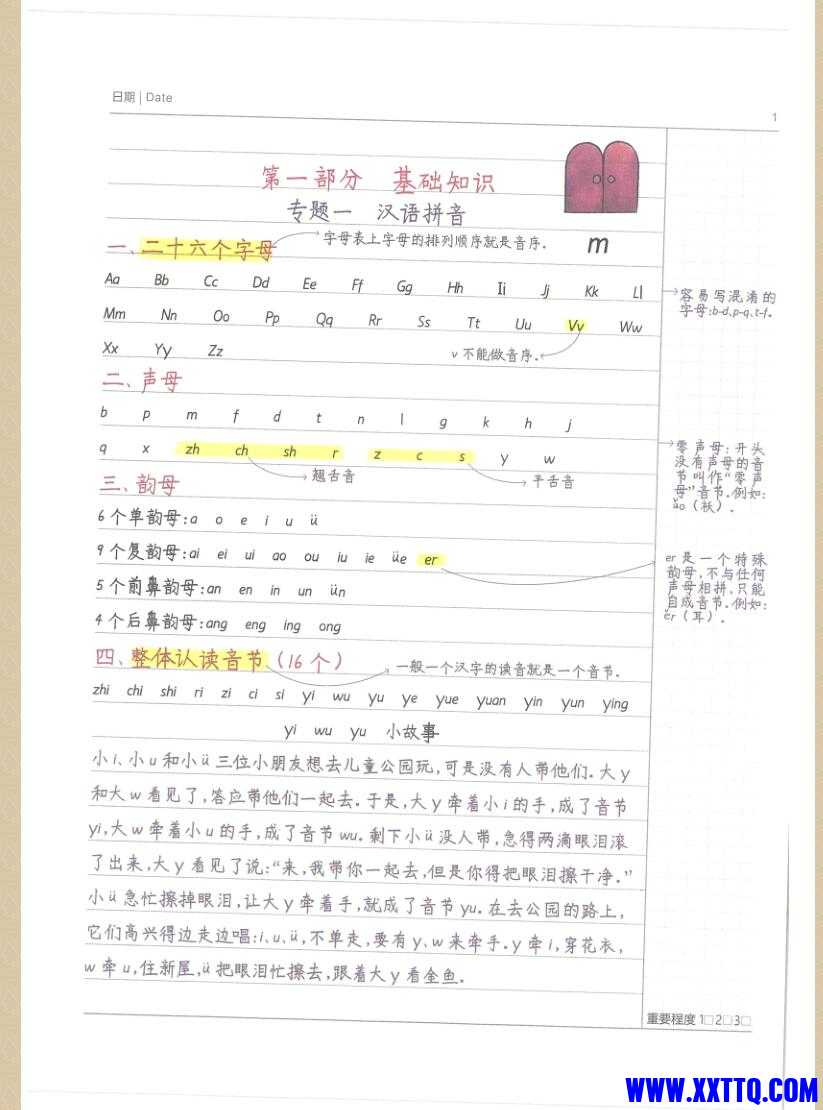 日期 | Date
1
第一部分 基础知识
专题一 汉语拼音
m
一、二十六个字母
字母表上字母的排列顺序就是音序.
Aa Bb Cc Dd Ee Ff Gg Hh Ii Jj Kk Ll
容易写混淆的
字母:b-d、p-q、t-f.
Mm Nn Oo Pp Qq Rr Ss Tt Uu Vv Ww
Xx Yy Zz
v不能做音序.
二、声母
b p m f d t n l g k h j
q x zh ch sh r z c s y w
翘舌音
平舌音
零声母:开头
没有声母的音
节叫作“零声
母”音节.例如:
ǎo(袄).
三、韵母
6个单韵母:a o e i u ü
9个复韵母:ai ei ui ao ou iu ie üe er
er是一个特殊
韵母,不与任何
声母相拼,只能
自成音节.例如:
ěr(耳).
5个前鼻韵母:an en in un ün
4个后鼻韵母:ang eng ing ong
四、整体认读音节(16个)
一般一个汉字的读音就是一个音节.
zhi chi shi ri zi ci si yi wu yu ye yue yuan yin yun ying
yi wu yu 小故事
小i、小u和小ü三位小朋友想去儿童公园玩,可是没有人带他们.大y
和大w看见了,答应带他们一起去.于是,大y牵着小i的手,成了音节
yi,大w牵着小u的手,成了音节wu.剩下小ü没人带,急得两滴眼泪滚
了出来,大y看见了说:“来,我带你一起去,但是你得把眼泪擦干净.”
小ü急忙擦掉眼泪,让大y牵着手,就成了音节yu.在去公园的路上,
它们高兴得边走边唱:i、u、ü,不单走,要有y、w来牵手.y牵i,穿花衣,
w牵u,住新屋,ü把眼泪忙擦去,跟着大y看金鱼.
重要程度 1□2□3□
WWW.XXTTQ.COM